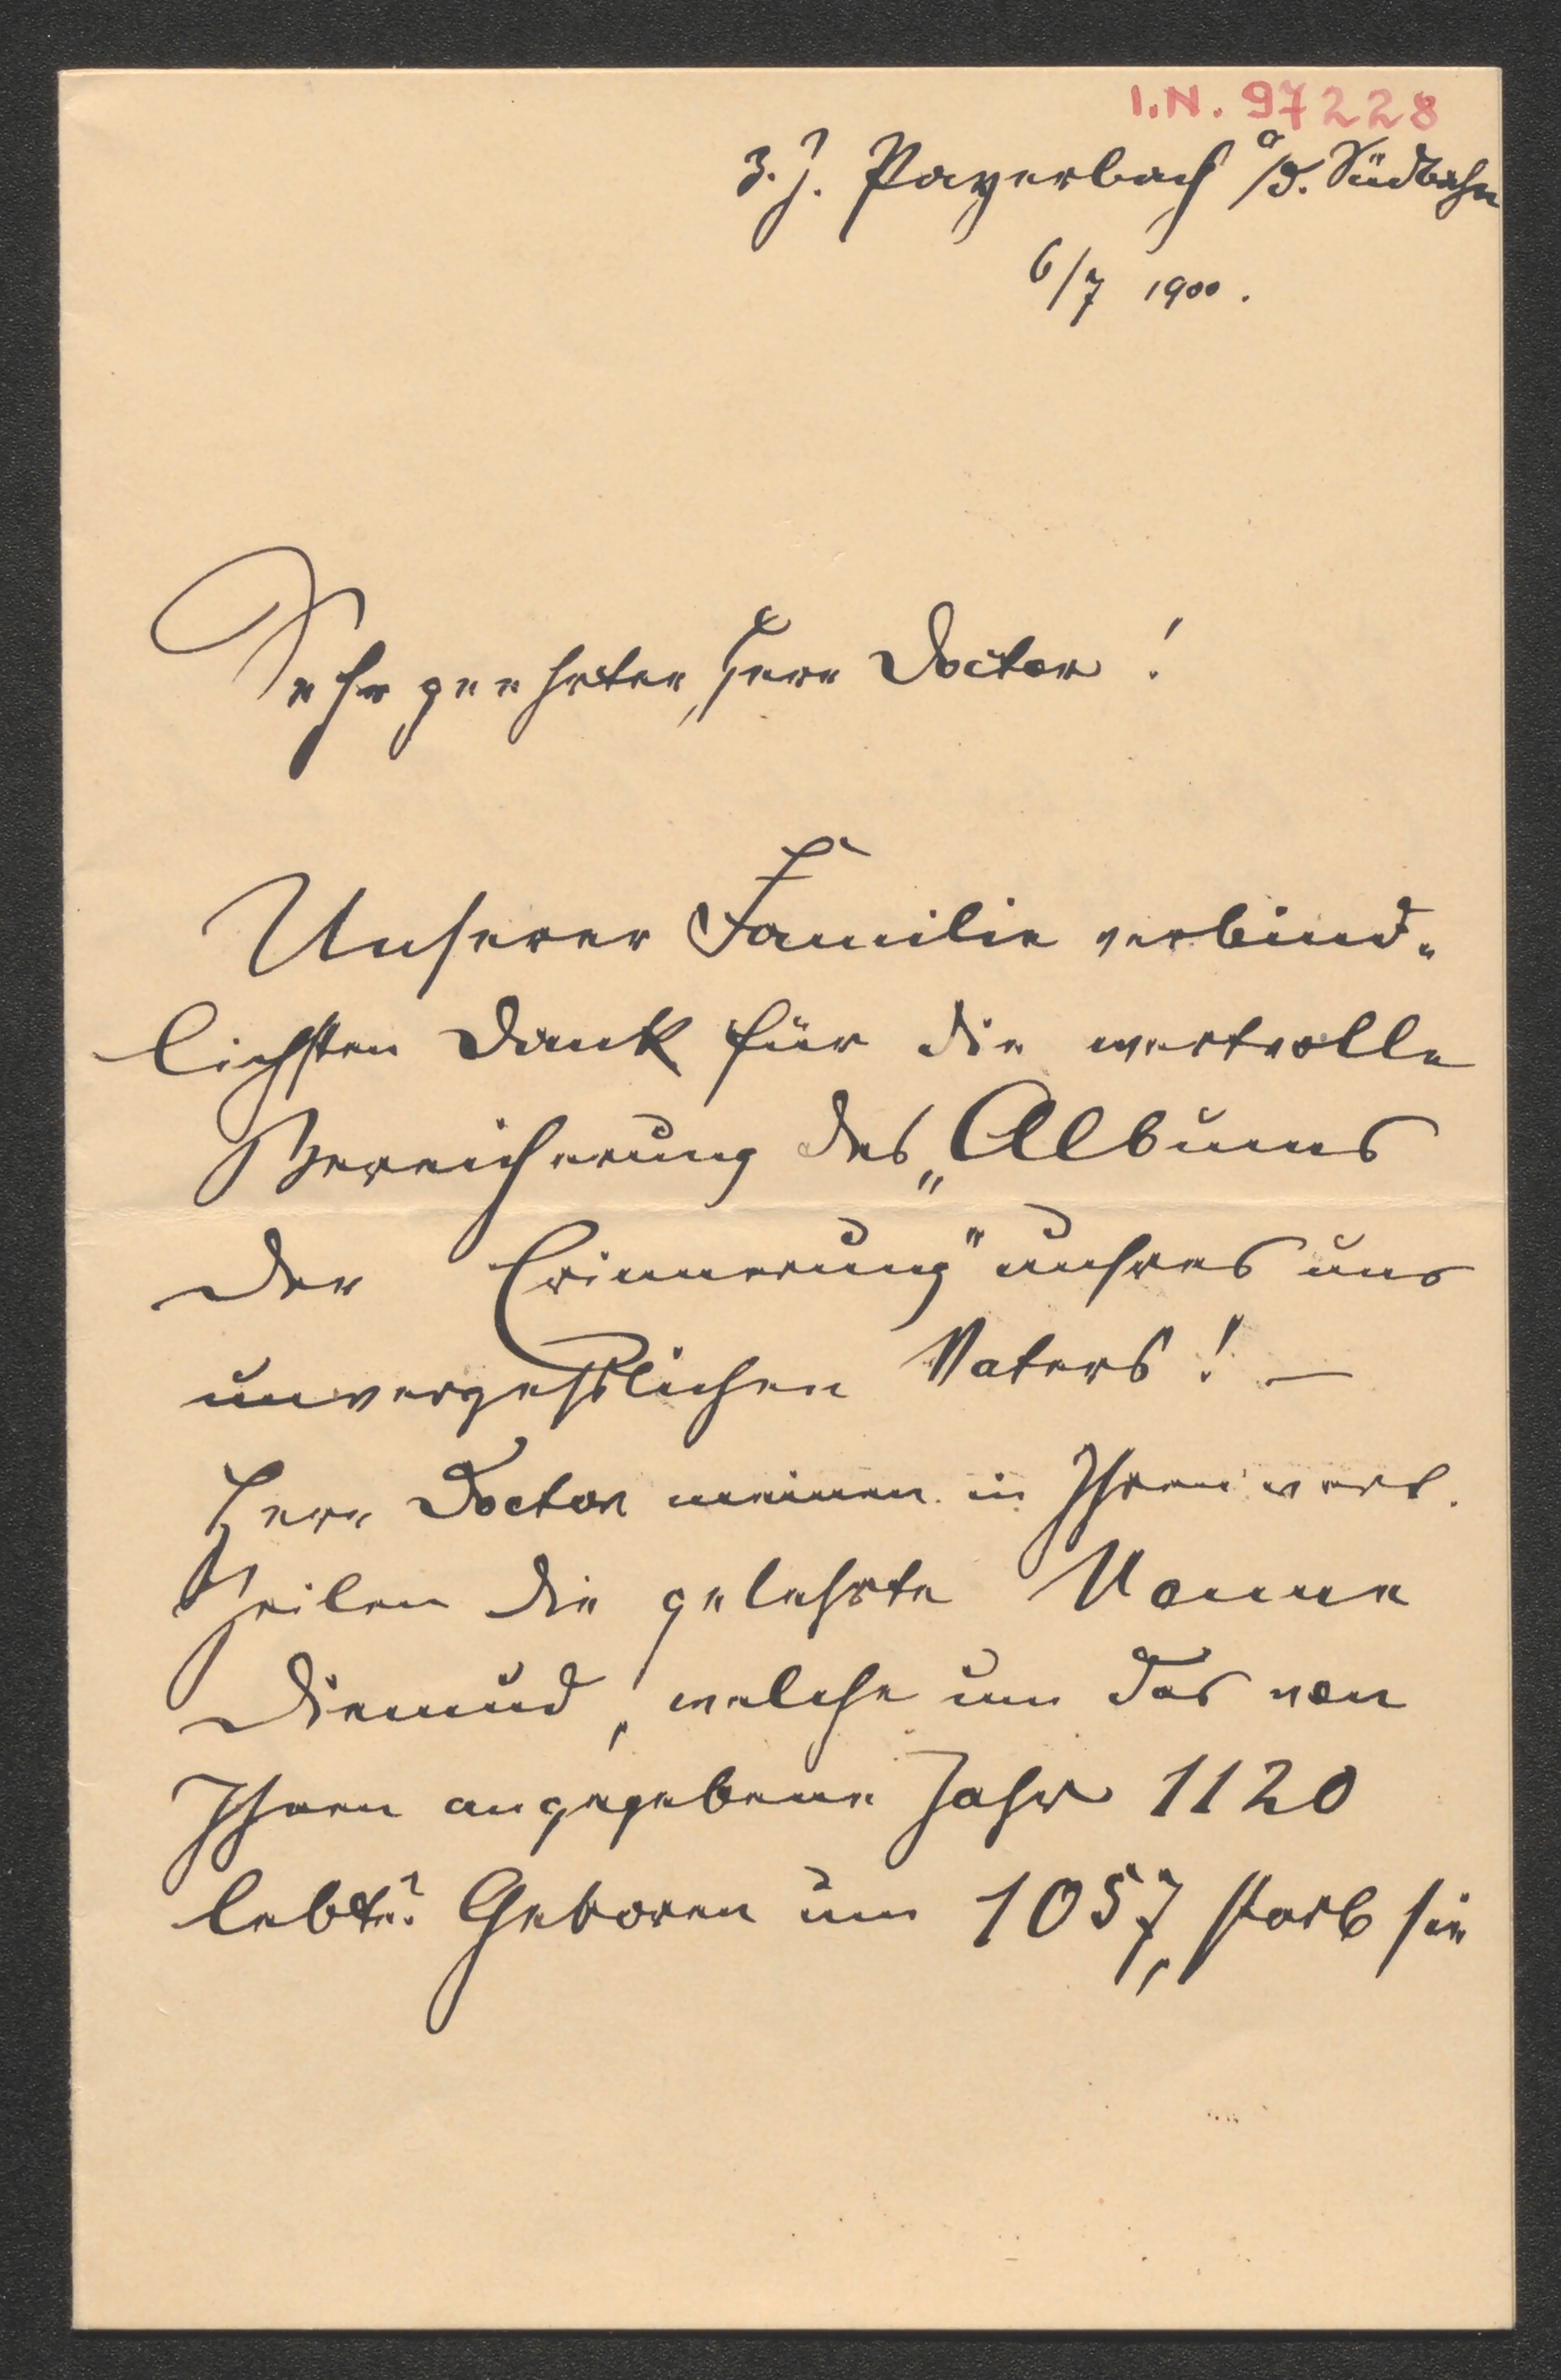 I.N. 97228
z. Z. Payerbach a/d. Südbahn
6/7 1900.
Sehr geehrter, Herr Doctor!
Unserer Familie verbind-
lichsten Dank für die wertvolle
Bereicherung des „Albums
der Erinnerung" unsres uns
unvergeßlichen Vaters! —
Herr Doctor meinen in Ihren wert.
Zeilen die gelehrte Nonne
Diemud, welche um das von
Ihnen angegebene Jahr 1120
lebte? Geboren um 1057, starb sie